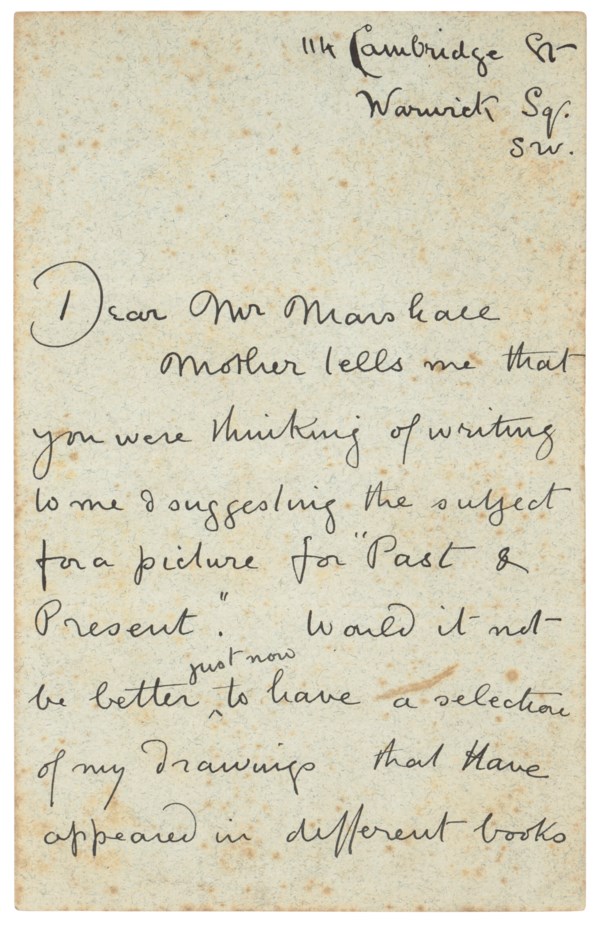 114 Cambridge St
Warwick Sq.
S.W.
Dear Mr Marshall
Mother tells me that
you were thinking of writing
to me & suggesting the subject
for a picture for "Past &
Present". Would it not
just now
be better ^ to have a selection
of my drawings that have
appeared in different books